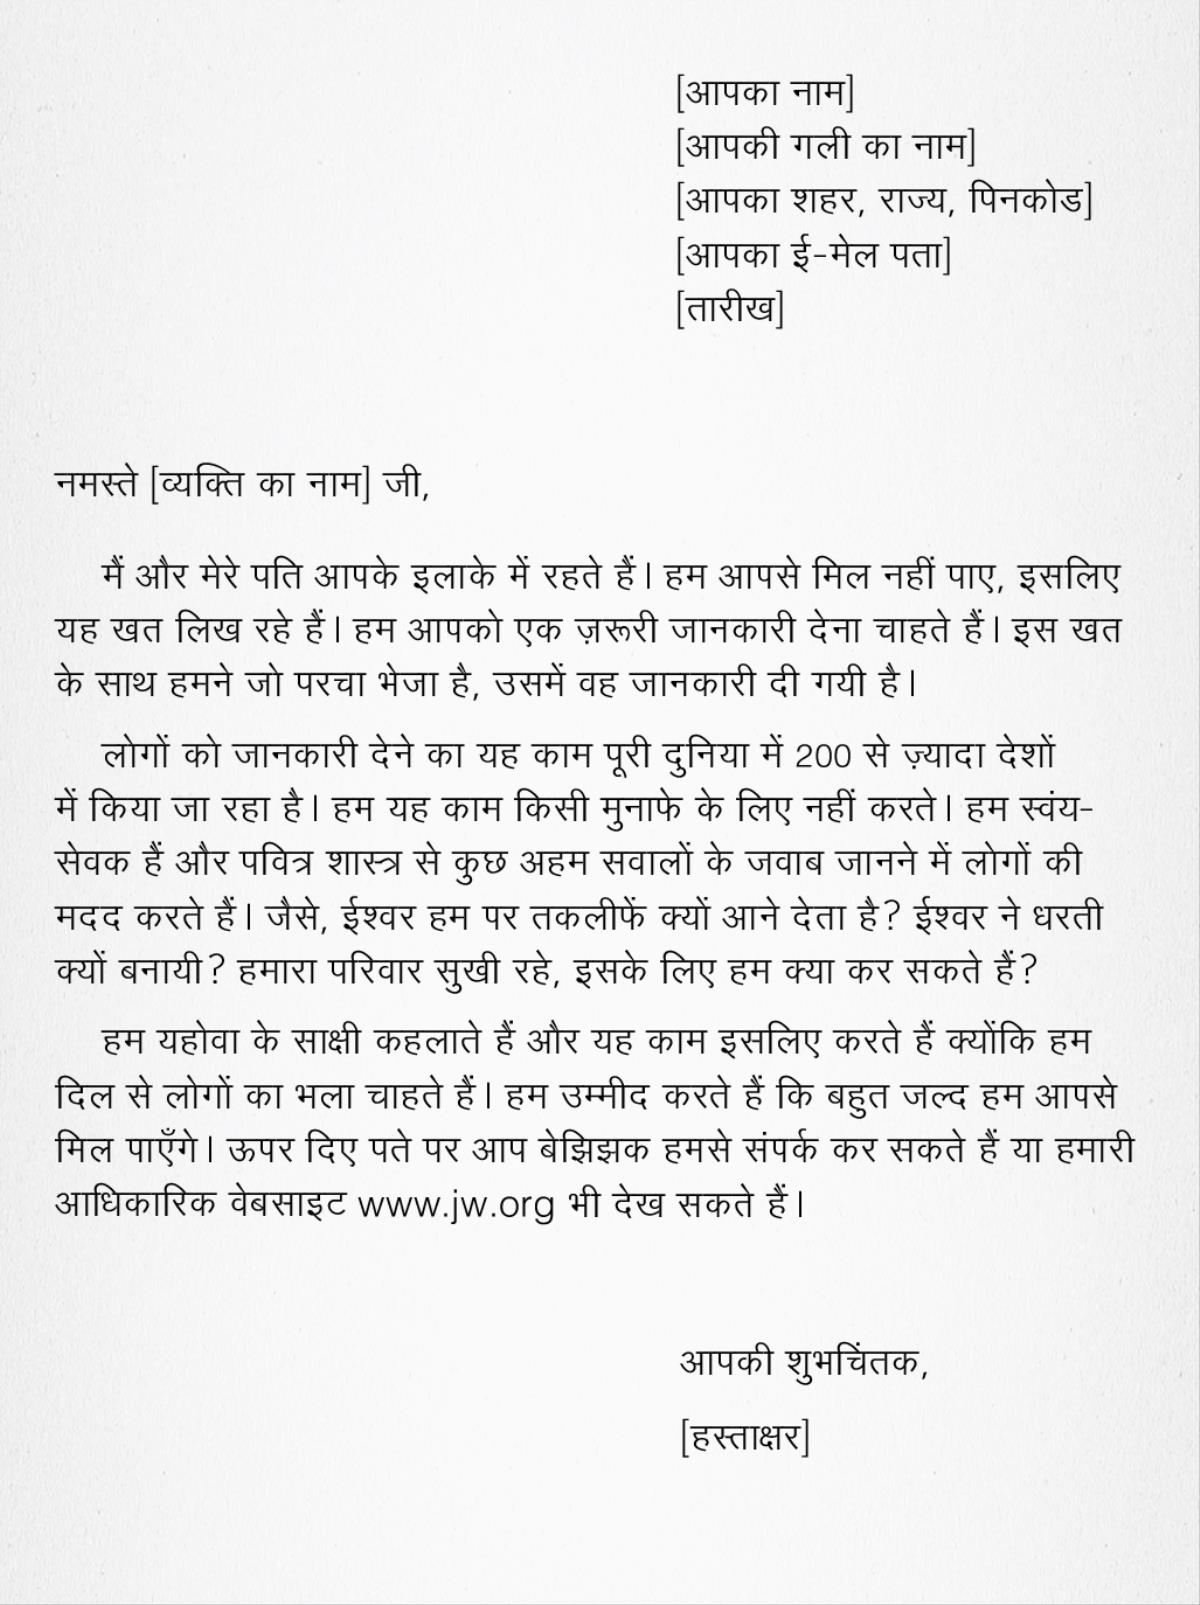 [आपका नाम]
[आपकी गली का नाम]
[आपका शहर, राज्य, पिनकोड]
[आपका ई-मेल पता]
[तारीख]
नमस्ते [व्यक्ति का नाम] जी,
मैं और मेरे पति आपके इलाके में रहते हैं। हम आपसे मिल नहीं पाए, इसलिए
यह खत लिख रहे हैं। हम आपको एक ज़रूरी जानकारी देना चाहते हैं। इस खत
के साथ हमने जो परचा भेजा है, उसमें वह जानकारी दी गयी है।
लोगों को जानकारी देने का यह काम पूरी दुनिया में 200 से ज़्यादा देशों
में किया जा रहा है। हम यह काम किसी मुनाफे के लिए नहीं करते। हम स्वंय-
सेवक हैं और पवित्र शास्त्र से कुछ अहम सवालों के जवाब जानने में लोगों की
मदद करते हैं। जैसे, ईश्वर हम पर तकलीफें क्यों आने देता है? ईश्वर ने धरती
क्यों बनायी? हमारा परिवार सुखी रहे, इसके लिए हम क्या कर सकते हैं?
हम यहोवा के साक्षी कहलाते हैं और यह काम इसलिए करते हैं क्योंकि हम
दिल से लोगों का भला चाहते हैं। हम उम्मीद करते हैं कि बहुत जल्द हम आपसे
मिल पाएँगे। ऊपर दिए पते पर आप बेझिझक हमसे संपर्क कर सकते हैं या हमारी
आधिकारिक वेबसाइट www.jw.org भी देख सकते हैं।
आपकी शुभचिंतक,
[हस्ताक्षर]